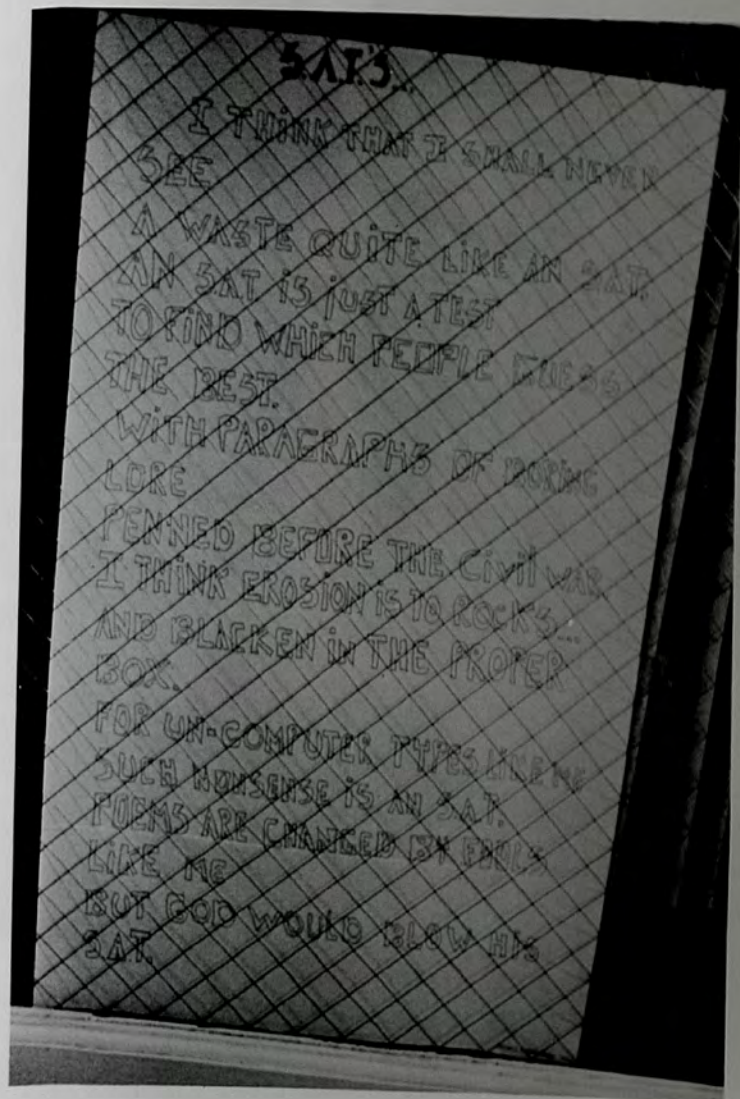 S.A.T.'S...
I THINK THAT I SHALL NEVER
SEE
A WASTE QUITE LIKE AN S.A.T.
AN S.A.T. iS jUST A TEST
TO FIND WHICH PEOPLE GUESS
THE BEST.
WITH PARAGRAPHS OF BORING
LORE
PENNED BEFORE THE CiVil WAR.
I THINK EROSION IS TO ROCKS...
AND BLACKEN iN THE PROPER
BOX.
FOR UN-COMPUTER TYPES LIKE ME
SUCH NONSENSE iS AN S.A.T.
POEMS ARE CHANGED BY FOOLS
LiKE ME
BUT GOD WOULD BLOW HiS
S.A.T.